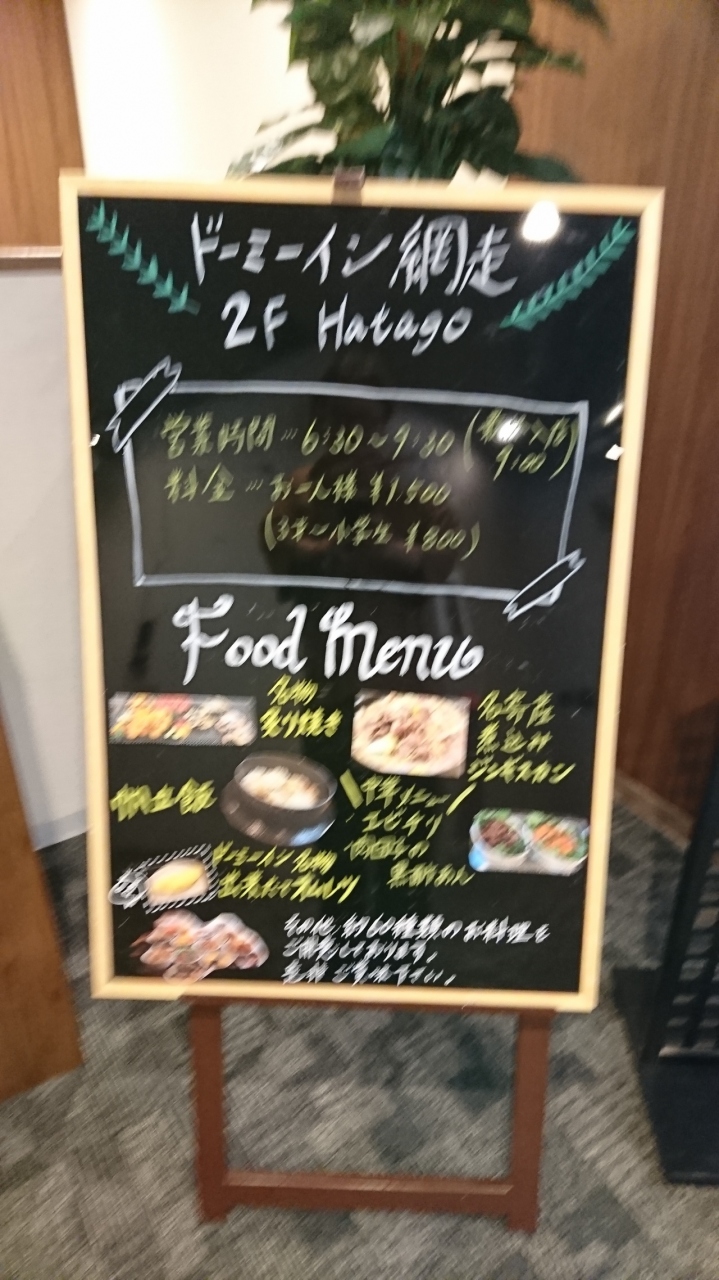 ドーミーイン網走
2F Hatago
営業時間…6:30～9:30(最終入店
9:00)
料金…お一人様 ¥1,500
(3才～小学生 ¥800)
Food Menu
名物
炙り焼き
名寄産
煮込み
ジンギスカン
帆立飯
中華メニュー
エビチリ
肉団子の
黒酢あん
ドーミーイン名物
出来たてオムレツ
その他、約60種類のお料理を
ご用意しております。
是非ご賞味下さい。